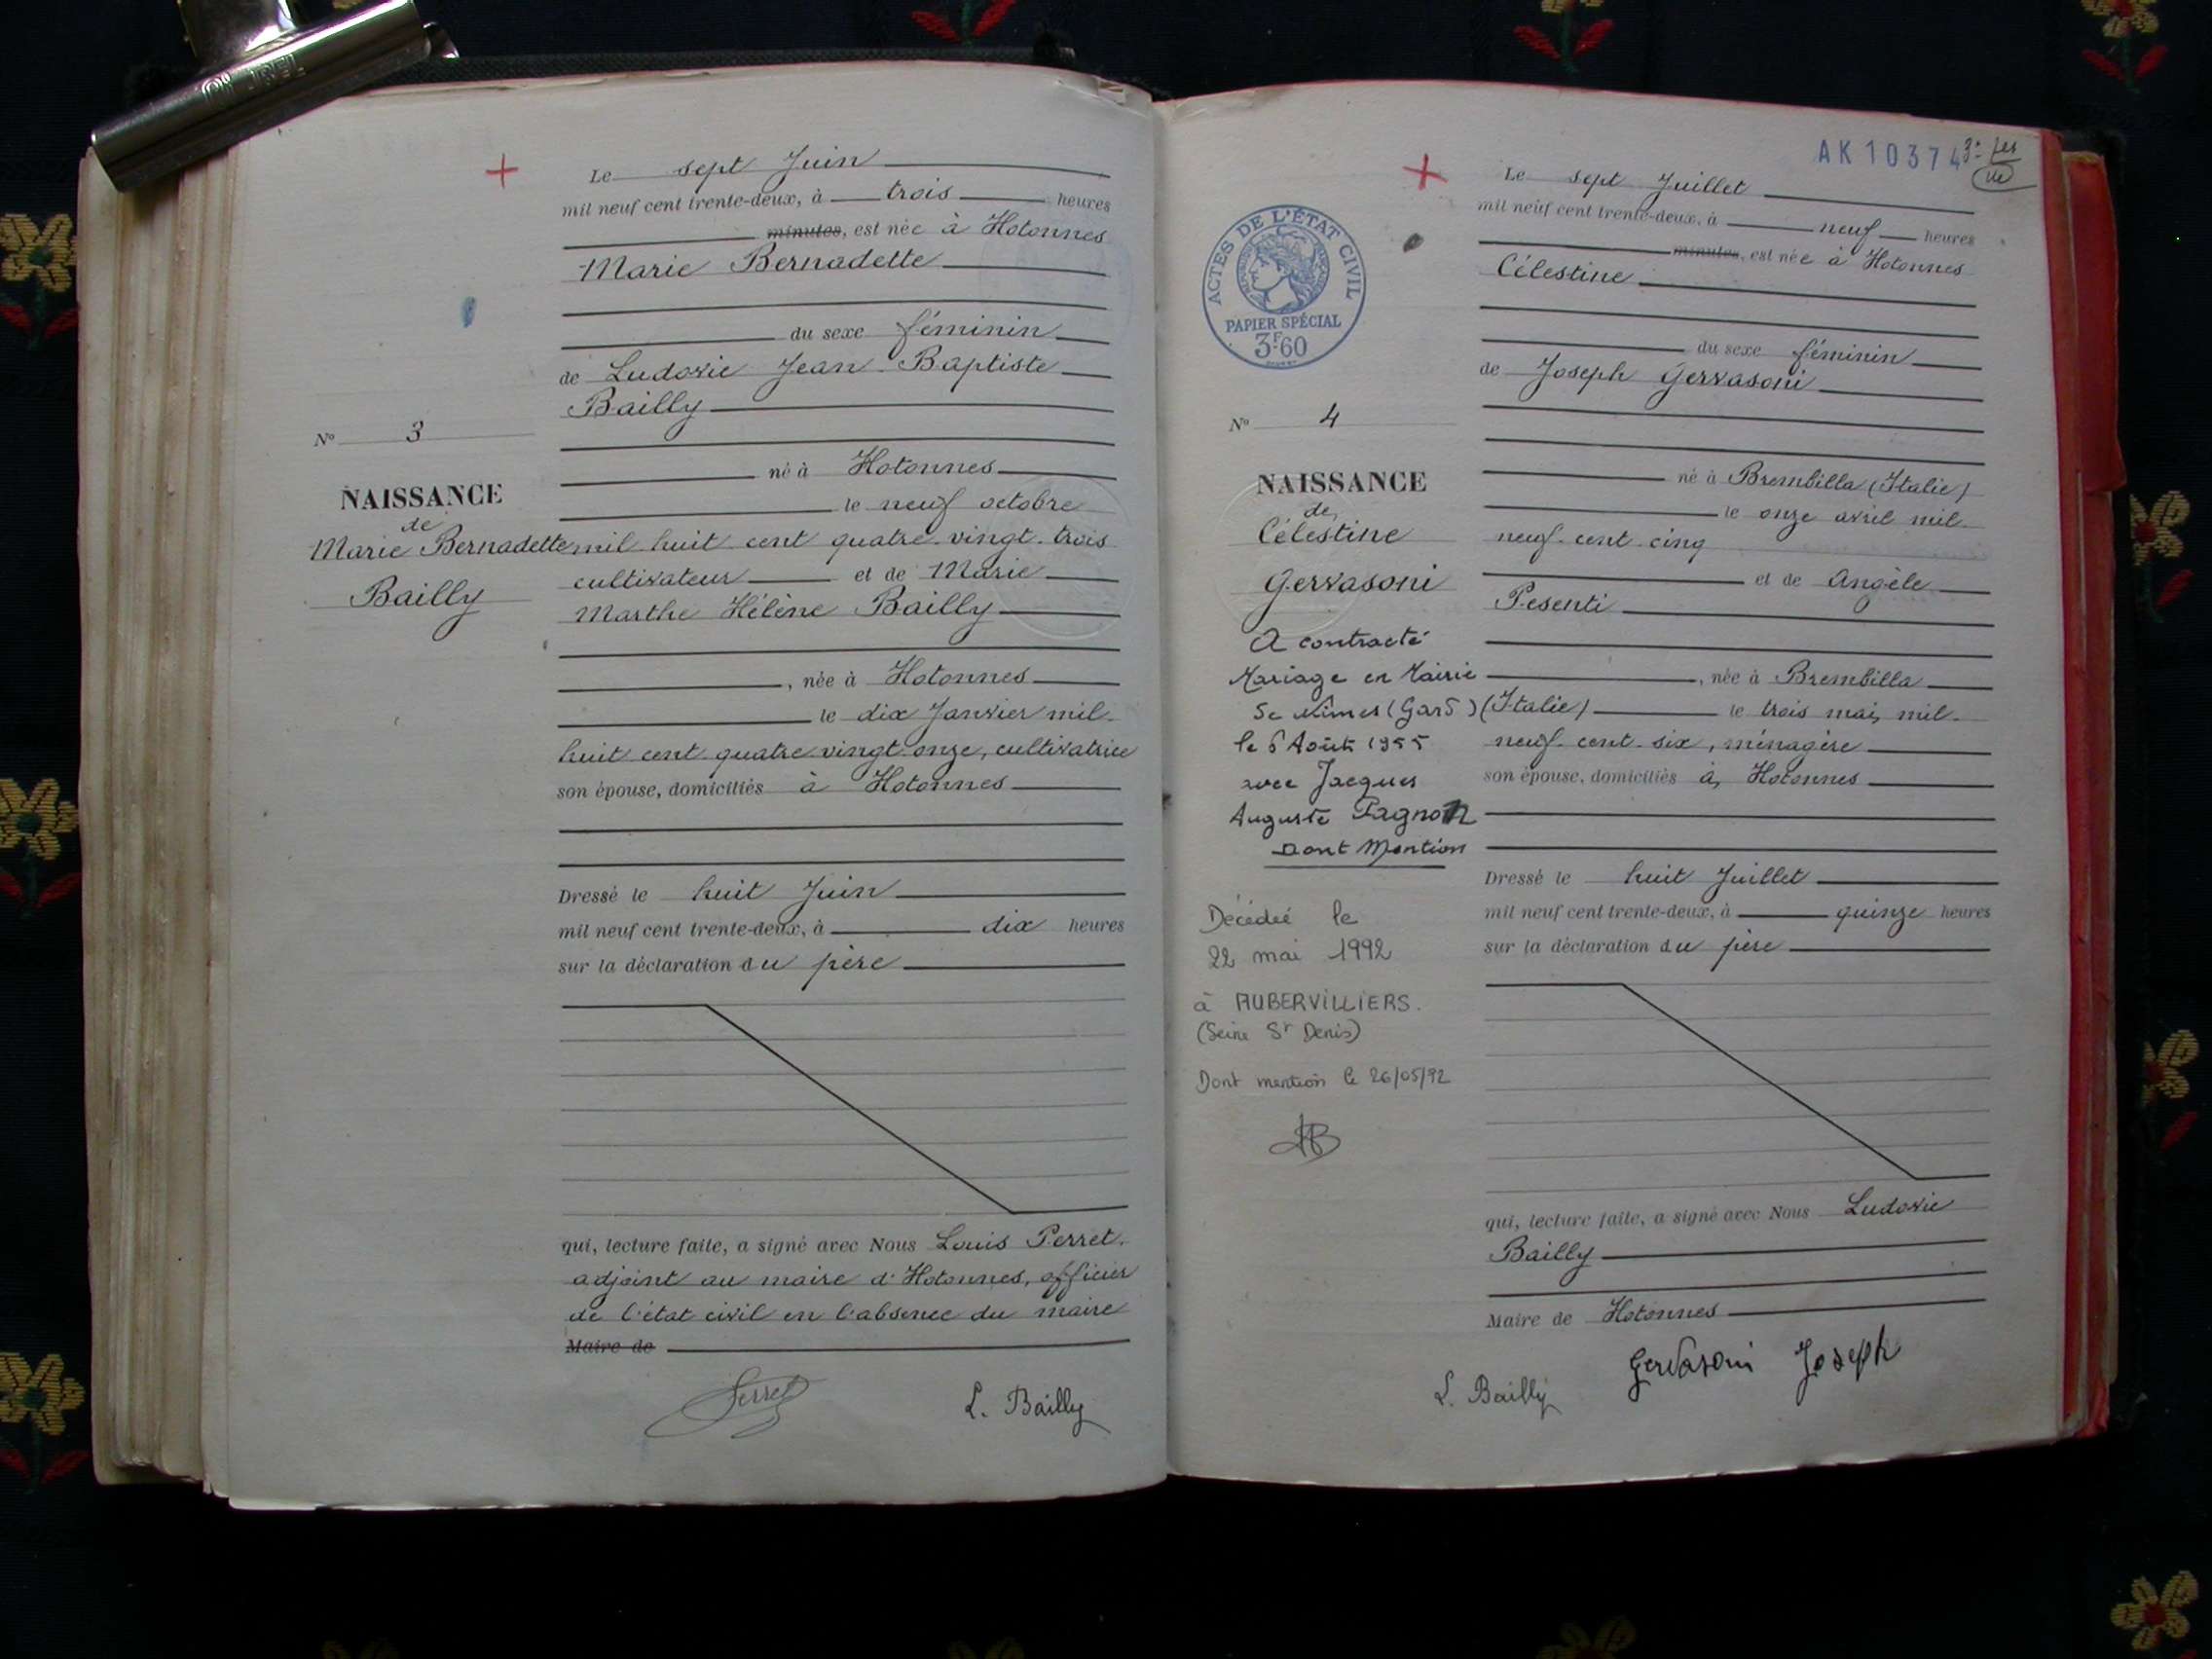 Le sept Juin
mil neuf cent trente-deux, à trois heures
minutes, est née à Hotonnes
Marie Bernadette
du sexe féminin
de Ludovic Jean-Baptiste
Bailly
né à Hotonnes
le neuf octobre
mil huit cent quatre-vingt-trois
cultivateur et de Marie
Marthe Hélène Bailly
, née à Hotonnes
le dix Janvier mil-
huit cent quatre vingt-onze, cultivatrice
son épouse, domiciliés à Hotonnes
Dressé le huit Juin
mil neuf cent trente-deux, à dix heures
sur la déclaration du père
qui, lecture faite, a signé avec Nous Louis Perret,
adjoint au maire d'Hotonnes, officier
de l'état civil en l'absence du maire
Maire de
Perret L. Bailly
No 3
NAISSANCE
de
Marie Bernadette
Bailly
AK10374
ACTES DE L'ÉTAT CIVIL
PAPIER SPÉCIAL
3F60
Le sept Juillet
mil neuf cent trente-deux, à neuf heures
minutes, est née à Hotonnes
Célestine
du sexe féminin
de Joseph Gervasoni
né à Brembilla (Italie)
le onze avril mil-
neuf-cent-cinq
et de Angèle
Pesenti
, née à Brembilla
(Italie) le trois mai, mil-
neuf-cent-six, ménagère
son épouse, domiciliés à Hotonnes
Dressé le huit Juillet
mil neuf cent trente-deux, à quinze heures
sur la déclaration du père
qui, lecture faite, a signé avec Nous Ludovic
Bailly
Maire de Hotonnes
L. Bailly Gervasoni Joseph
No 4
NAISSANCE
de
Célestine
Gervasoni
A contracté
Mariage en Mairie
de Nîmes (Gard)
le 6 Août 1955
avec Jacques
Auguste Pagnon
Dont Mention
Décédée le
22 mai 1992
à AUBERVILLIERS.
(Seine St Denis)
Dont mention le 26/05/92